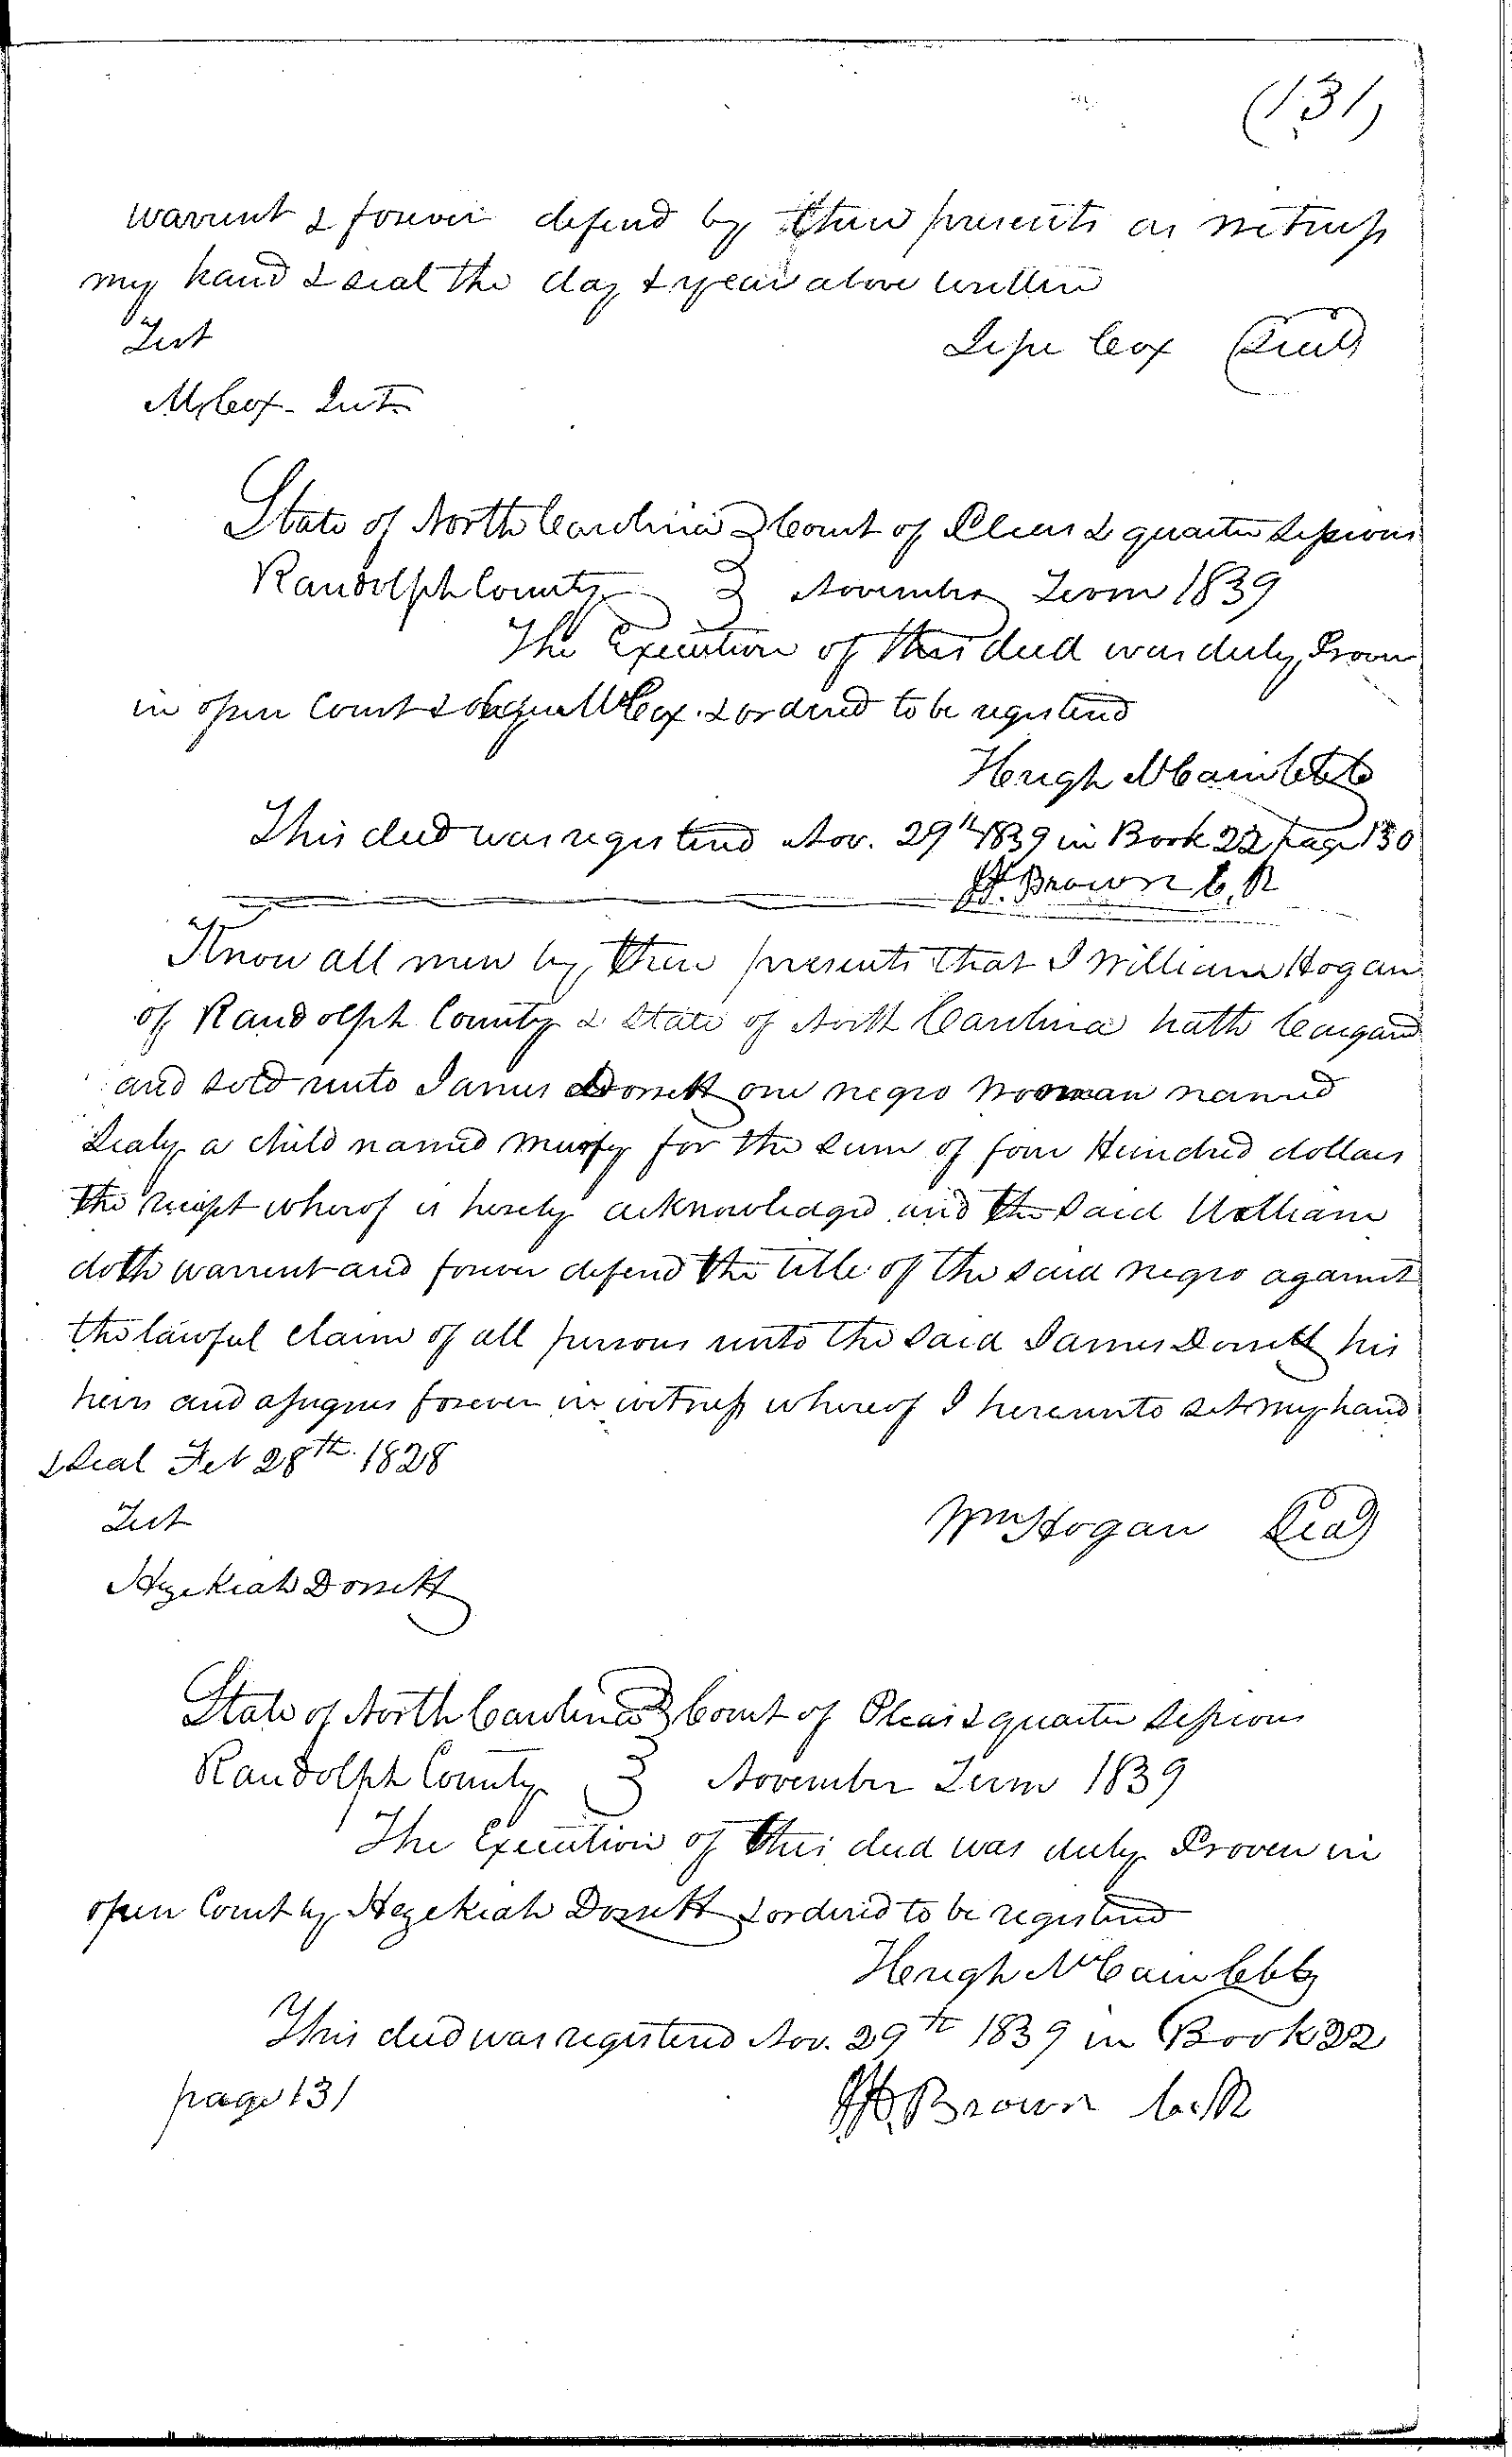 (131)
warrent & forever defend by these presents as witness
my hand & seal the day & year above written
Test
Cox (Seal)
M. Cox
State of North Carolina } Court of Pleas & quarter Sessions
Randolph County } November Term 1839
The Execution of this deed was duly Proven
in open Court Cox & ordered to be registered
Hugh McCain Clk
This deed was registered Nov. 29th 1839 in Book 22 page 130
Brown C. R
Know all men by these presents that I William Hogan
of Randolph County & State of North Carolina hath bargand
and sold unto James Dorsett one negro wooman named
a child named for the sum of four Hundred dollars
the receipt wherof is hereby acknowledged and the said William
doth warrent and forever defend the title of the said negro against
the lawful claim of all persons unto the said James Dorsett his
heirs and assignes forever in witness whereof I hereunto set my hand
& seal Feb 28th. 1828
Test
Wm Hogan Seal
Hezekiah Dorsett
State of North Carolina } Court of Pleas & quarter Sessions
Randolph County } November Term 1839
The Execution of this deed was duly Proven in
open Court by Hezekiah Dorsett & ordered to be registered
Hugh McCain Clk
This deed was registered Nov. 29th 1839 in Book 22
page 131
Brown C. R